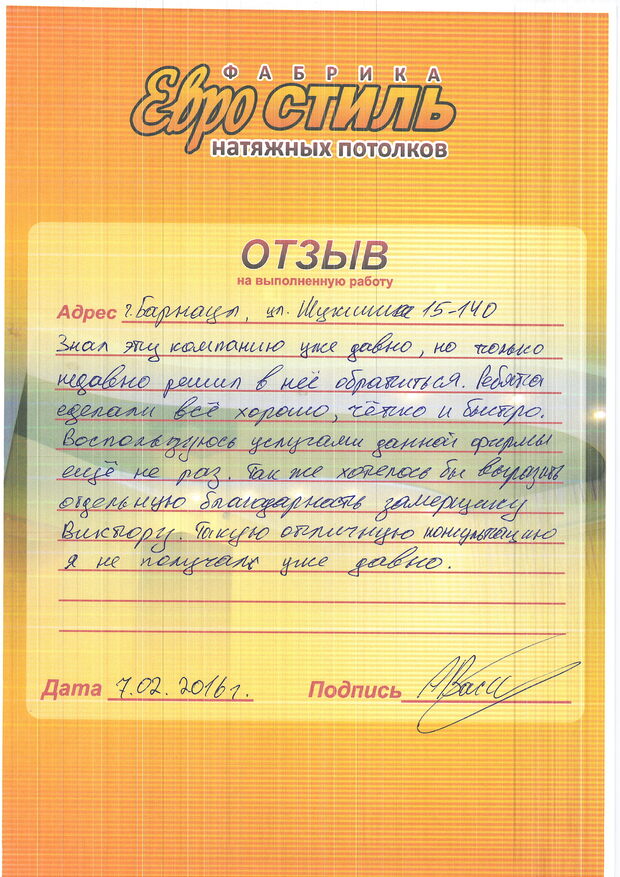 ФАБРИКА
Евро СТИЛЬ
НАТЯЖНЫХ ПОТОЛКОВ
ОТЗЫВ
на выполненную работу
Адрес г. Барнаул, ул. Шукшина 15-140
Знал эту компанию уже давно, но только
недавно решил в неё обратиться. Ребята
сделали всё хорошо, чётко и быстро.
Воспользуюсь услугами данной фирмы
ещё не раз. Так же хотелось бы выразить
отдельную благодарность замерщику
Виктору. Такую отличную консультацию
я не получал уже давно.
Дата 7.02.2016 г.
Подпись